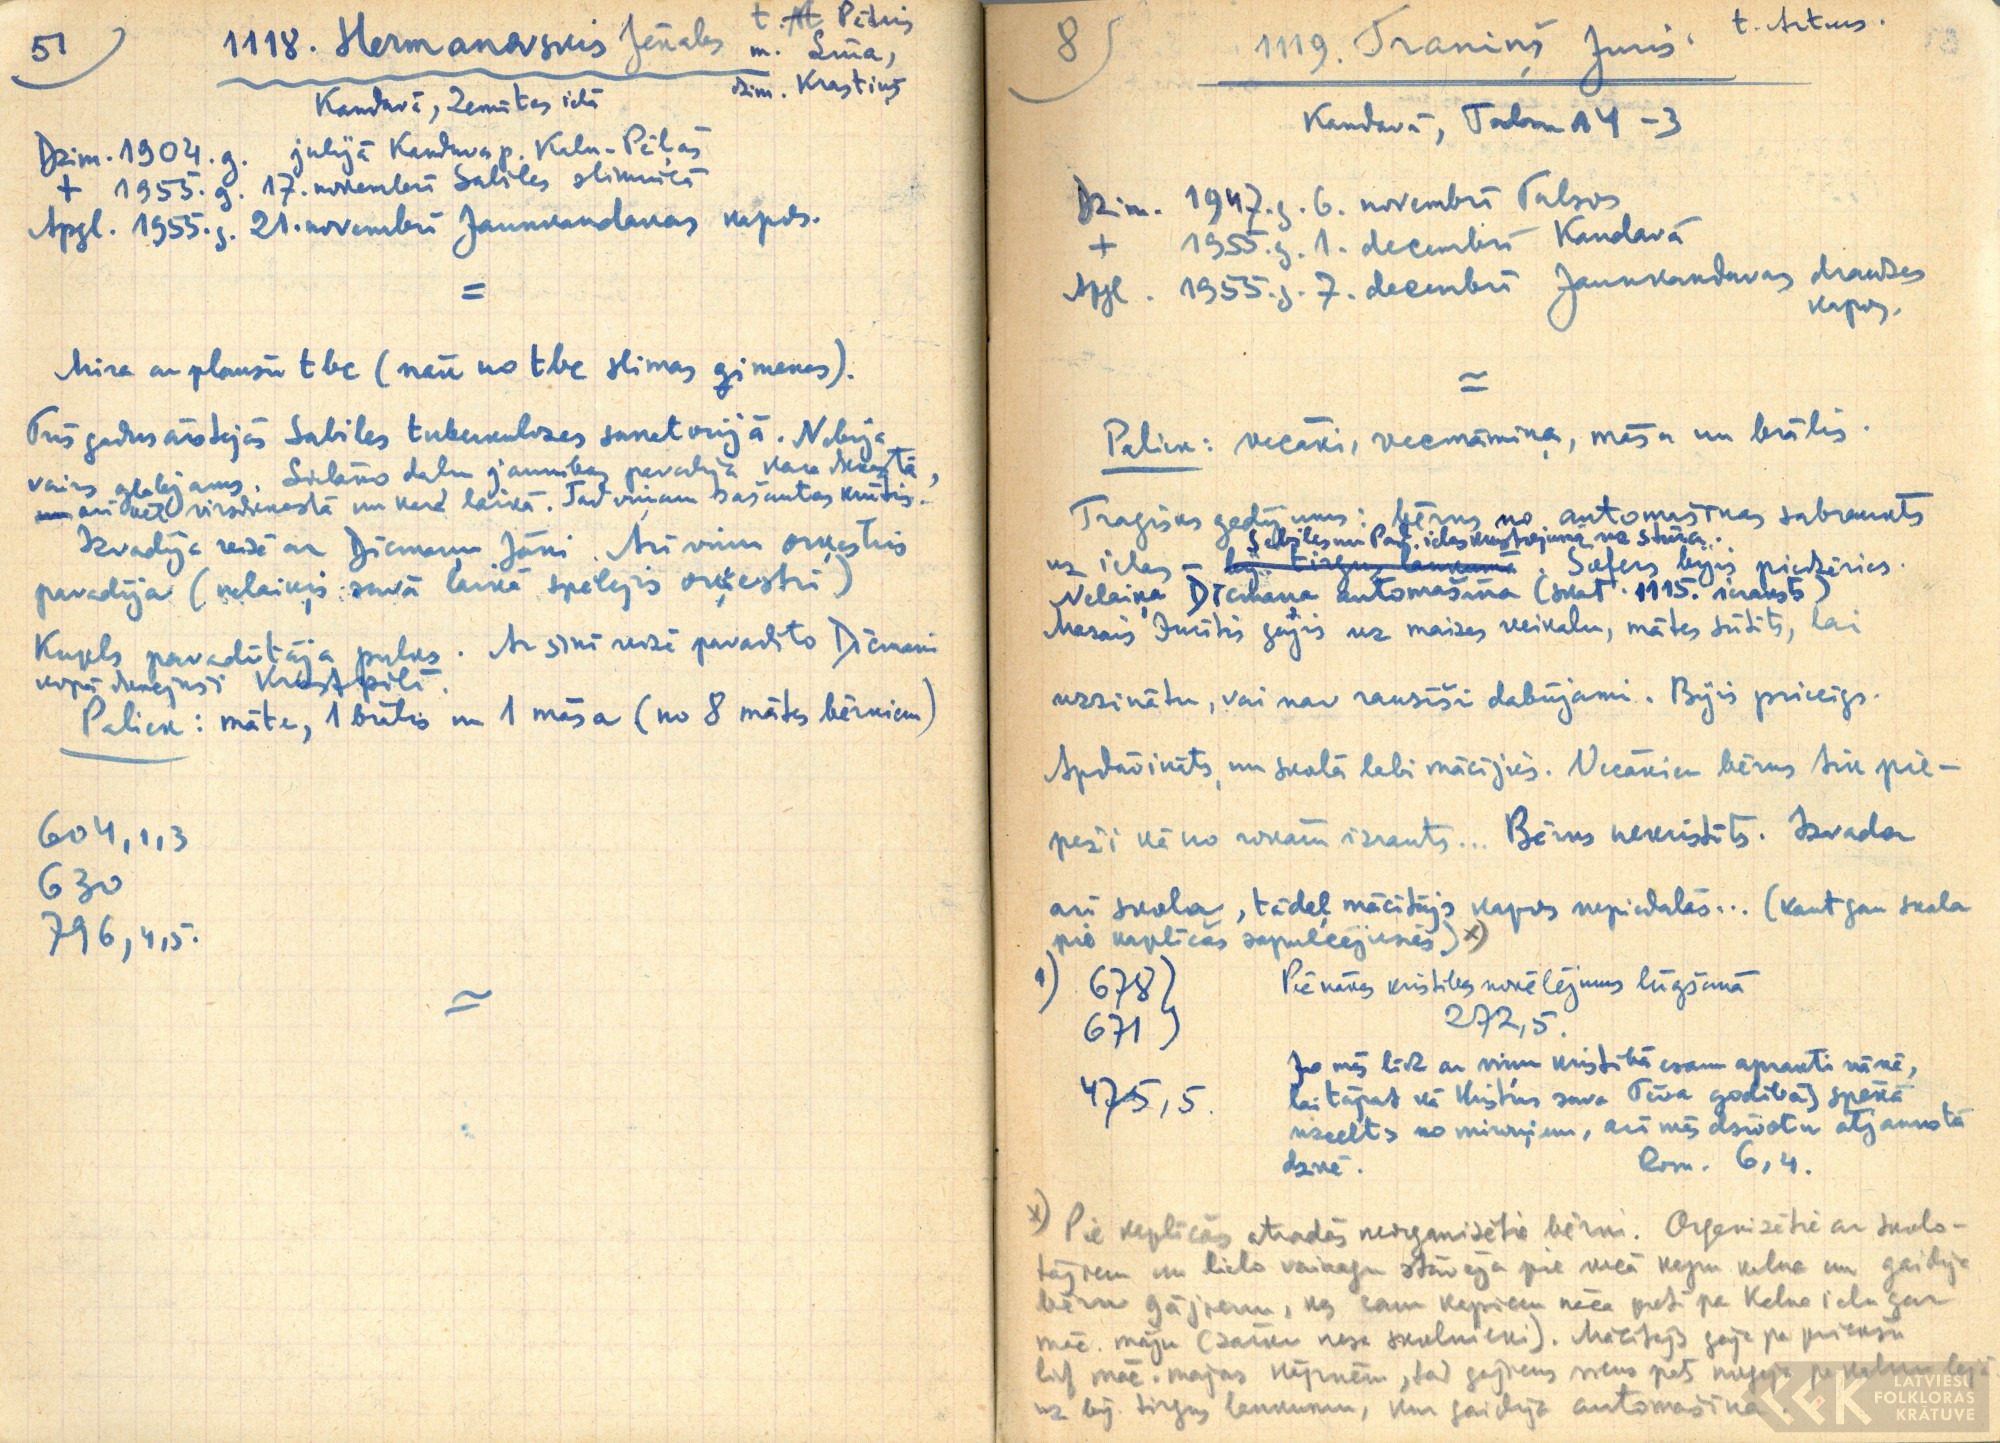 51
1118. Hermanovskis Jēkabs
t. Pēteris
m. Līna,
dzim. Krastiņš
Kandavā, Zemītes ielā
Dzim. 1904. g. jūlijā Kandavas p. Kaln-Pēļās
+ 1955. g. 17. novembrī Sabiles slimnīcā
Apgl. 1955. g. 21. novembrī Jaunkandavas kapos.
=
Mira ar plaušu tbc (nāk no tbc slimas ģimenes).
Trīs gadus ārstējās Sabiles tuberkulozes sanatorijā. Nebija
vairs glābjams. Lielāko daļu jaunības pavadīja kara dienestā,
arī virsdienestā un karā laikā. Tad viņam sašautas krūtis.
Izvadīja reizē ar Dīcmaņu Jāni. Arī viņu orķestris
pavadīja (nelaiķis savā laikā spēlējis orķestrī)
Kupls pavadītāja pulks. Ar šinī reizē pavadīto Dīcmani
kopā dienējuši Krustpilī.
Paliek: māte, 1 brālis un 1 māsa (no 8 mātes bērniem)
604,1,3
630
796,4,5.
=
8
1119. Traniņš Juris.
t. Arturs.
Kandavā, Talsu 14-3
Dzim. 1947. g. 6. novembrī Talsos
+ 1955. g. 1. decembrī Kandavā
Apgl. 1955. g. 7. decembrī Jaunkandavas draudzes
kapos.
=
Paliek: vecāki, vecmāmiņa, māsa un brālis.
Tragisks gadījums: bērns no automašīnas sabraukts
Sabiles un ielas krustojumā uz stūra.
uz ielas – bij. tirgus laukumā. Šoferis bijis piedzēries.
Nelaiķa Dīcmaņa automašīna (skat. 1115. ieraksts)
Mazais Jurītis gājis uz maizes veikalu, mātes sūtīts, lai
uzzinātu, vai nav rausīši dabūjami. Bijis priecīgs.
Apdāvināts, un skolā labi mācījies. Vecākiem bērns tik pie-
peši kā no rokām izrauts... Bērns nekristīts. Izvada
arī skola, tādēļ mācītājs kapos nepiedalās... (kaut gan skola
pie kapličas sapulcējusies) x)
1) 678)
671)
Pie nāves kristības novēlējums lūgšanā
272,5.
475,5.
Jo mēs līdz ar viņu kristībā esam aprakti nāvē,
lai tāpat kā Kristus sava Tēva godības spēkā
uzcelts no miroņiem, arī mēs dzīvotu atjaunotā
dzīvē. Rom. 6,4.
x) Pie kapličas atradās neorganizētie bērni. Organizētie ar skolo-
tājiem un lielo vainagu stāvēja pie vecā kapu kalna un gaidīja
bēru gājienu, kas cauri kapiem nāca pa Kalna ielu gar
māc. māju (zārku nesa skolnieki). Mācītājs gāja pa priekšu
līdz māc. mājas, tad gājiens viens pats nogāja pa kalnu lejā
uz bij. tirgus laukumu, kur gaidīja automašīna.
LATVIEŠU
FOLKLORAS
KRĀTUVE